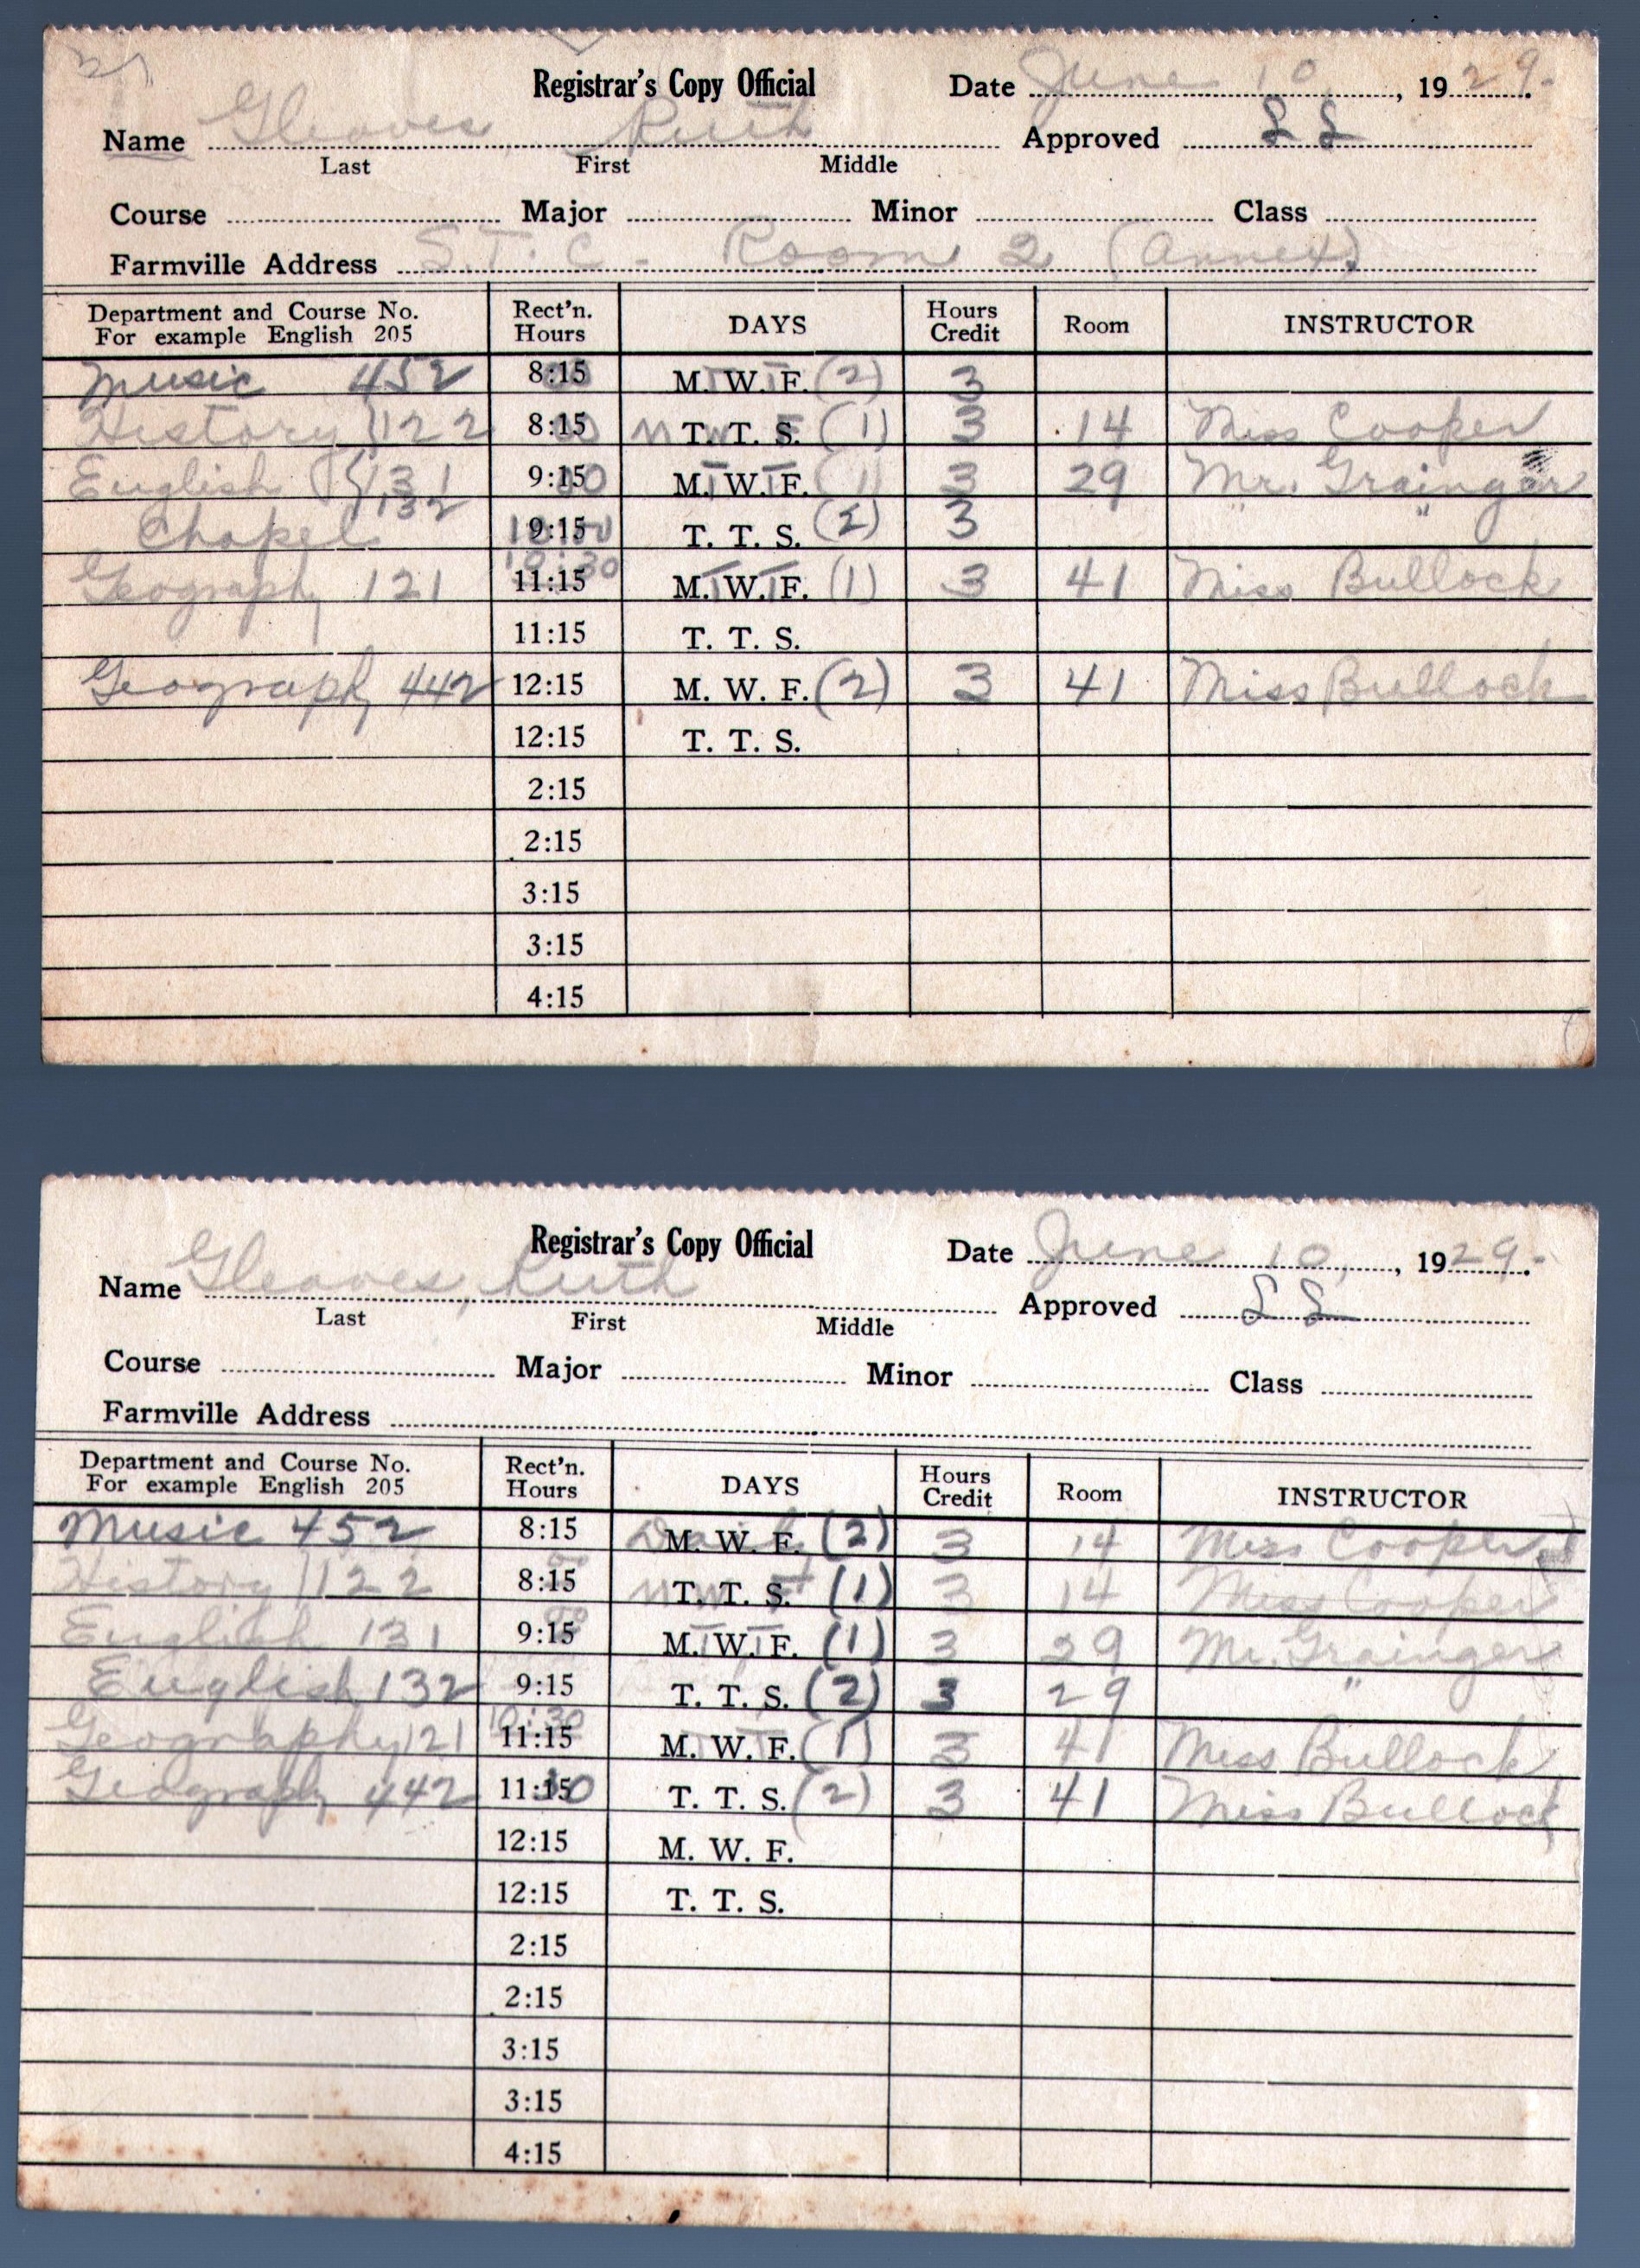 Registrar's Copy Official Date June 10, 1929.
Name Gleaves, Ruth Approved LL
Last First Middle
Course Major Minor Class
Farmville Address S.T.C. - Room 2 (Annex)
Department and Course No. For example English 205 Rect'n. Hours DAYS Hours Credit Room INSTRUCTOR
Music 452 8:15 M. W. F. (2) 3
History 122 8:15 T. T. S. (1) 3 14 Miss Cooper
English 131 9:15 M. W. F. (1) 3 29 Mr. Grainger
132 " "
Chapel 9:15 10:00 T. T. S. (2) 3
Geography 121 10:30 11:15 M. W. F. (1) 3 41 Miss Bullock
11:15 T. T. S.
Geography 442 12:15 M. W. F. (2) 3 41 Miss Bullock
12:15 T. T. S.
2:15
2:15
3:15
3:15
4:15
Registrar's Copy Official Date June 10, 1929.
Name Gleaves, Ruth Approved LL
Last First Middle
Course Major Minor Class
Farmville Address
Department and Course No. For example English 205 Rect'n. Hours DAYS Hours Credit Room INSTRUCTOR
Music 452 8:15 Daily M. W. F. (2) 3 14 Miss Cooper
History 122 8:15 T. T. S. (1) 3 14 Miss Cooper
English 131 9:15 M. W. F. (1) 3 29 Mr. Grainger
English 132 9:15 T. T. S. (2) 3 29 "
Geography 121 10:30 11:15 M. W. F. (1) 3 41 Miss Bullock
Geography 442 11:15 T. T. S. (2) 3 41 Miss Bullock
12:15 M. W. F.
12:15 T. T. S.
2:15
2:15
3:15
3:15
4:15